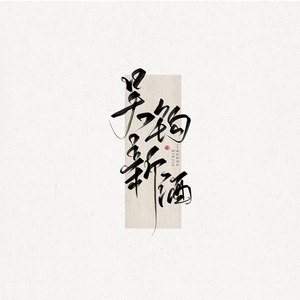 吴钩
新酒